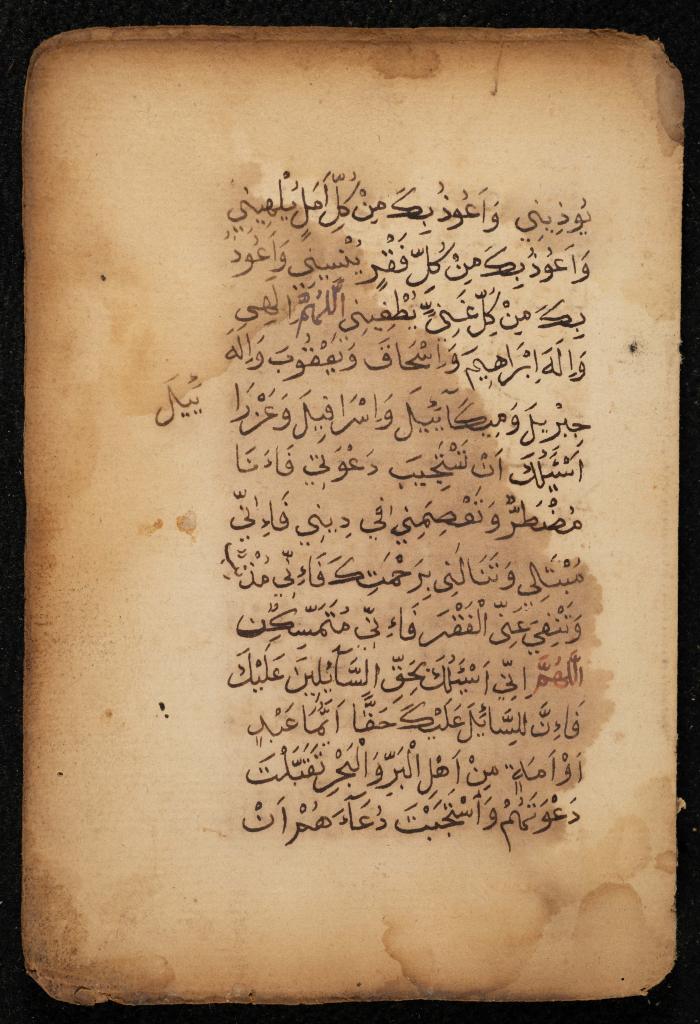 يُوذِينِي وَاَعُوذُ بِكَ مِنْ كُلِّ اَمَلٍ يُلْهِينِي
وَاَعُوذُ بِكَ مِنْ كُلِّ فَقْرٍ يُنْسِينِي وَاَعُوذُ
بِكَ مِنْ كُلِّ غَنِيٍّ يُطْغِينِي اَللّٰهُمَّ اِلٰهِي
وَاِلٰهَ اِبْرَاهِيمَ وَاِسْحَاقَ وَيَعْقُوبَ وَاِلٰهَ
جِبْرِيلَ وَمِيكَآئِيلَ وَاِسْرَافِيلَ وَعَزْرَا
ئِيلَ
اَسْئَلُكَ اَنْ تَسْتَجِيبَ دَعْوَتِي فَاِءنَا
مُضْطَرٌّ وَتَعْصِمَنِي فِي دِينِي فَاءِنِّي
مُبْتَالِي وَتَنَالَنِي بِرَحْمَتِكَ فَاءِنِّي
وَتَنْفِيَ عَنِّي الْفَقْرَ فَاءِنِّي مُتَمَسْكِنٌ
اَللّٰهُمَّ اِنِّي اَسْئَلُكَ بِحَقِّ السَّآئِلِينَ عَلَيْكَ
فَاءِنَّ لِلسَّائِلِ عَلَيْكَ حَقًّا اَيُّمَا عَبْدٍ
اَوْ اَمَةٍ مِنْ اَهْلِ الْبَرِّ وَالْبَحْرِ تَقَبَّلْتَ
دَعْوَتَهُمْ وَاَسْتَجَبْتَ دُعَآءَهُمْ اَنْ